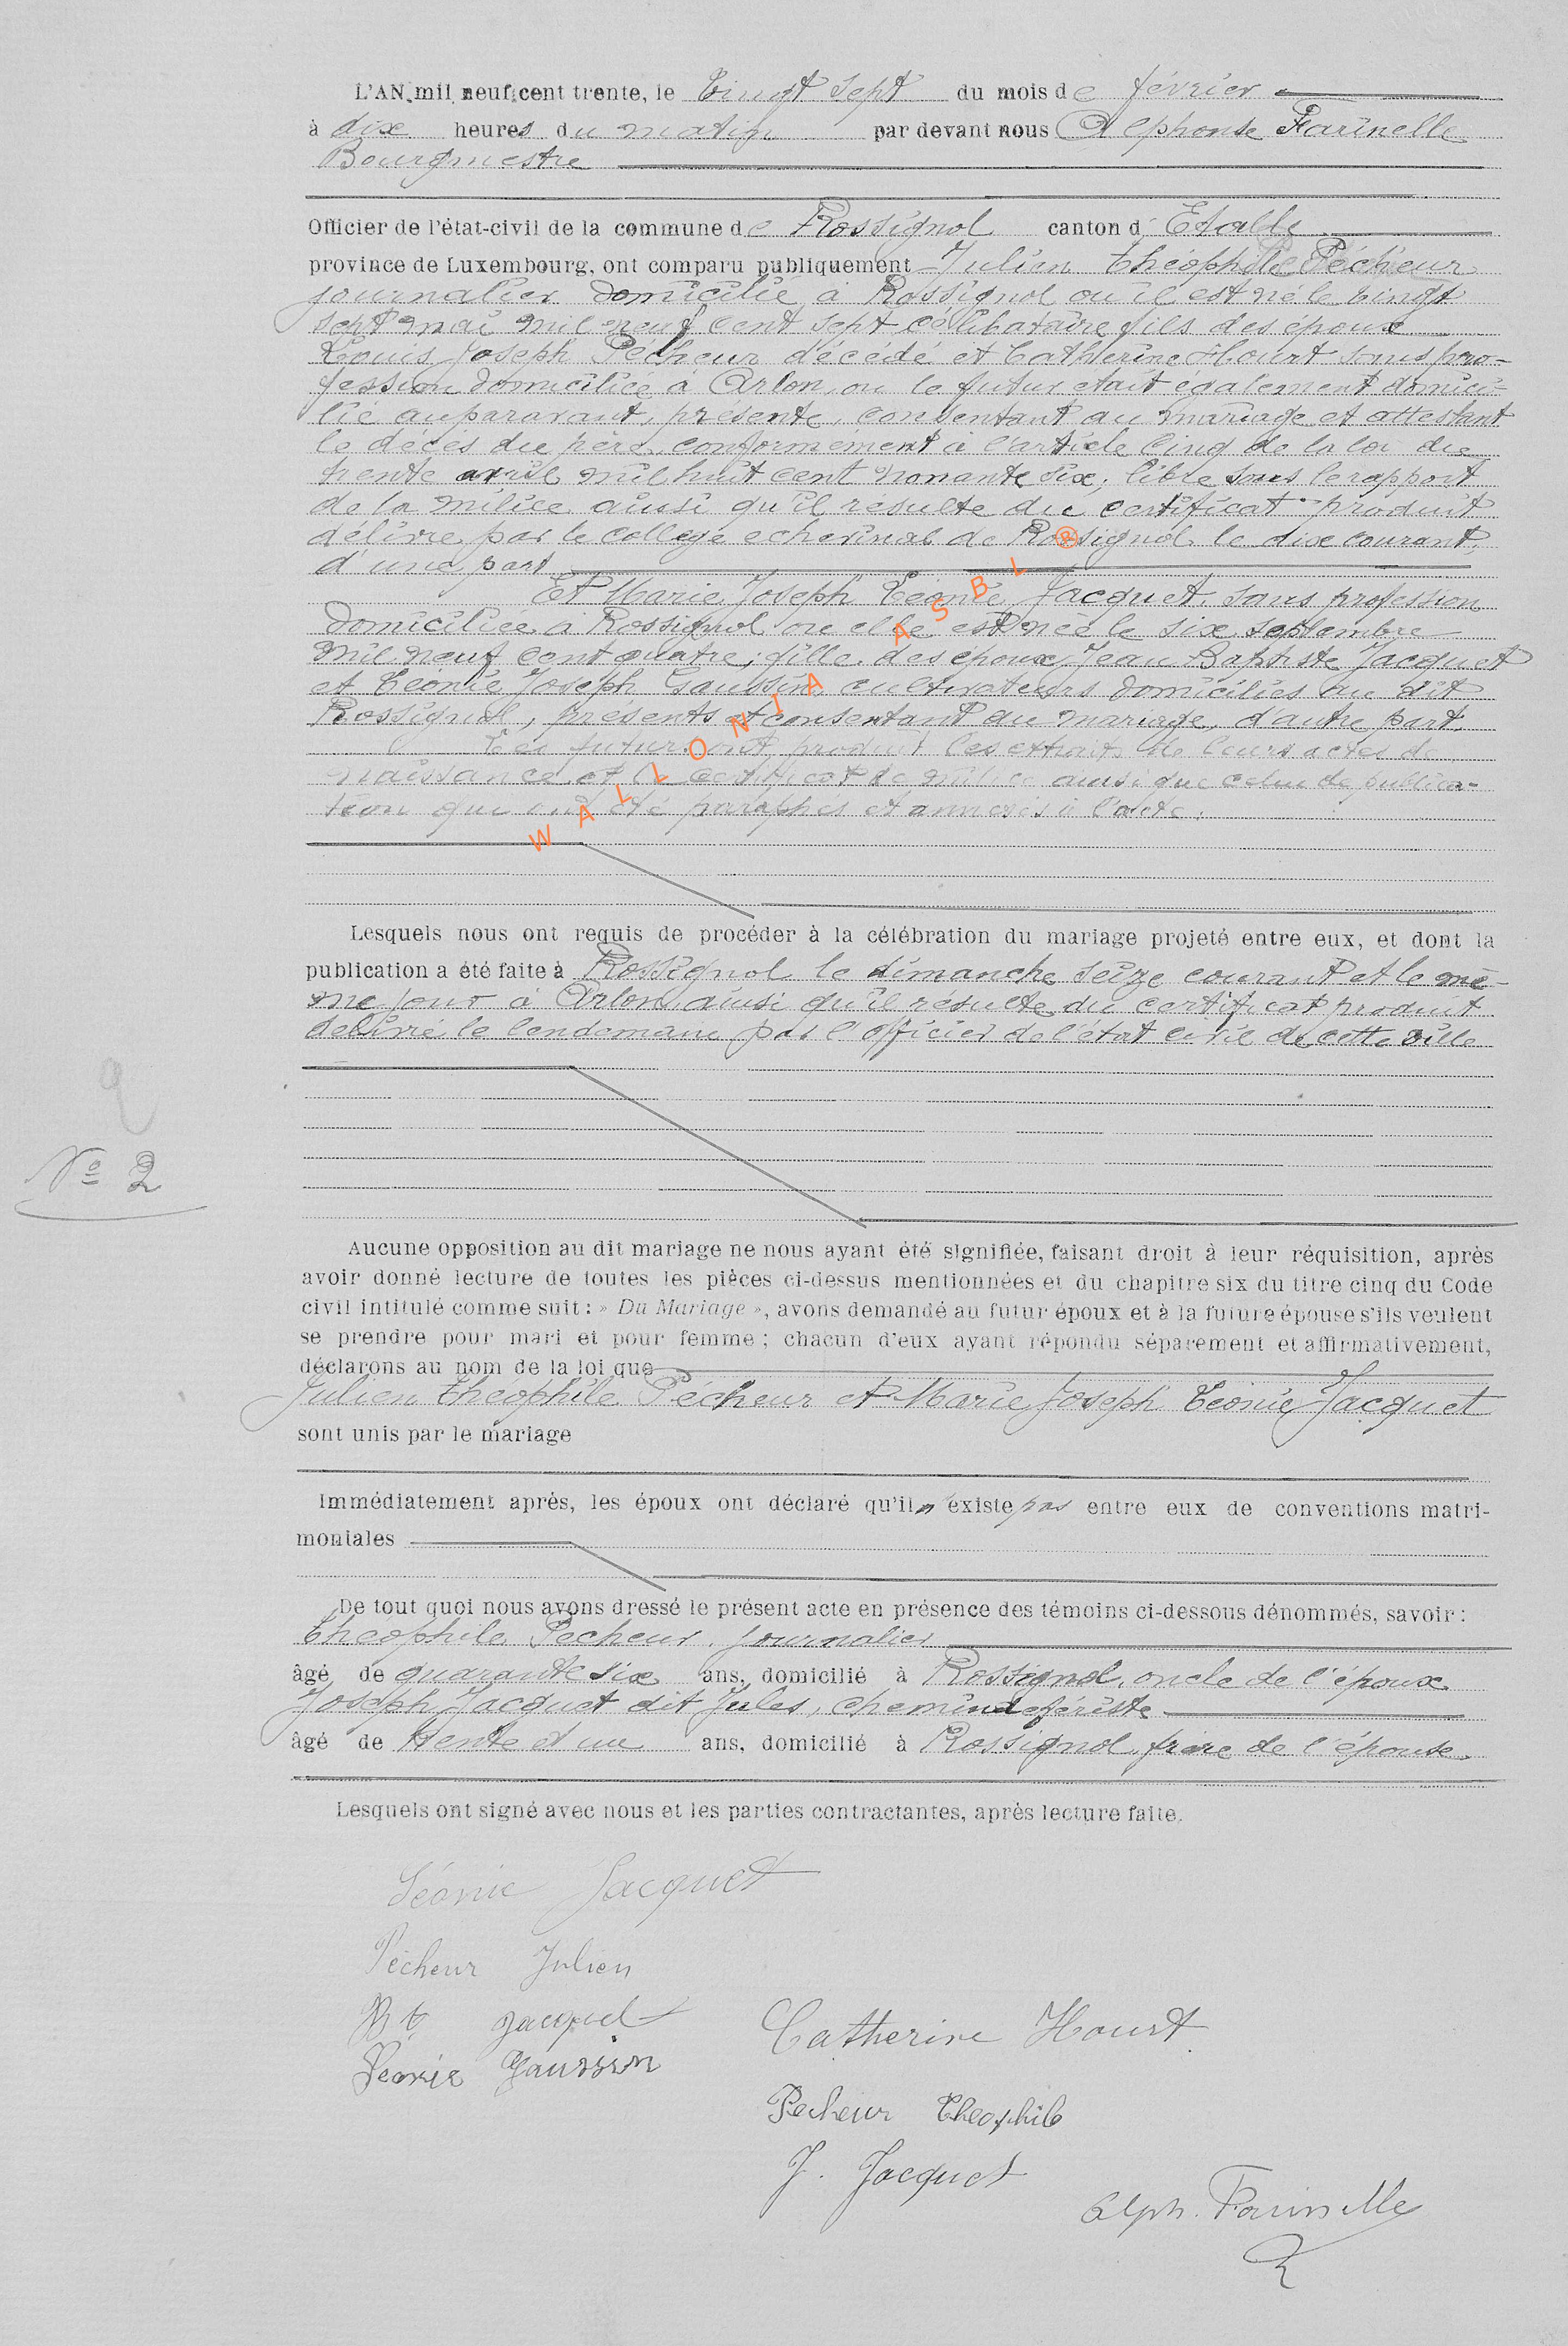 L'AN mil neuf cent trente, le Vingt sept du mois de février
à dix heures du matin par devant nous Alphonse Farinelle
Bourgmestre
Officier de l'état-civil de la commune de Rossignol canton d' Etalle
province de Luxembourg, ont comparu publiquement Julien Théophile Pécheur
journalier domicilié à Rossignol où il est né le vingt
sept mai mil neuf cent sept célibataire fils des époux
Louis Joseph Pécheur décédé et Catherine Hourt sans pro-
fession domiciliée à Arlon, ou le futur était également domici-
lié auparavant, présente, consentant au mariage et attestant
le décès du père, conformement à l'article cinq de la loi du
trente avril mil huit cent nonante six; libre sous le rapport
de la milice ainsi qu'il résulte du certificat produit
délivré par le collège echevinal de Rossignol le dix courant,
d'une part
Et Marie Joseph Léonie Jacquet, sans profession
domiciliée à Rossignol ou elle est née le six septembre
mil neuf cent quatre; fille des époux Jean Baptiste Jacquet
et Léonie Joseph Gaussin cultivateurs domiciliés au dit
Rossignol, présents et consentant au mariage, d'autre part,
Les futurs ont produit les extraits de leurs actes de
naissance et le certificat de milice ainsi que celui de publica-
tion qui ont été paraphés et annexés à l'acte.
WALLONIA ASBL ®
Lesquels nous ont requis de procéder à la célébration du mariage projeté entre eux, et dont la
publication a été faite à Rossignol le dimanche seize courant et le mê-
me jour à Arlon ainsi qu'il résulte du certificat produit
délivré le lendemain par l'officier de l'état civil de cette ville
2
N° 2
Aucune opposition au dit mariage ne nous ayant été signifiée, faisant droit à leur réquisition, après
avoir donné lecture de toutes les pièces ci-dessus mentionnées et du chapitre six du titre cinq du Code
civil intitulé comme suit : » Du Mariage », avons demandé au futur époux et à la future épouse s'ils veulent
se prendre pour mari et pour femme ; chacun d'eux ayant répondu séparement et affirmativement,
déclarons au nom de la loi que
Julien Théophile Pécheur et Marie Joseph Léonie Jacquet
sont unis par le mariage
Immédiatement après, les époux ont déclaré qu'il n'existe pas entre eux de conventions matri-
moniales
De tout quoi nous avons dressé le présent acte en présence des témoins ci-dessous dénommés, savoir :
Théophile Pecheur, journalier
âgé de quarante six ans, domicilié à Rossignol, oncle de l'époux
Joseph Jacquet dit Jules, chemindefériste
âgé de trente et un ans, domicilié à Rossignol, frère de l'épouse.
Lesquels ont signé avec nous et les parties contractantes, après lecture faite.
Léonie Jacquet
Pécheur Julien
Bte Jacquet
Catherine Hourt
Léonie Gaussin
Pecheur Theophile
J. Jacquet
Alph. Farinelle